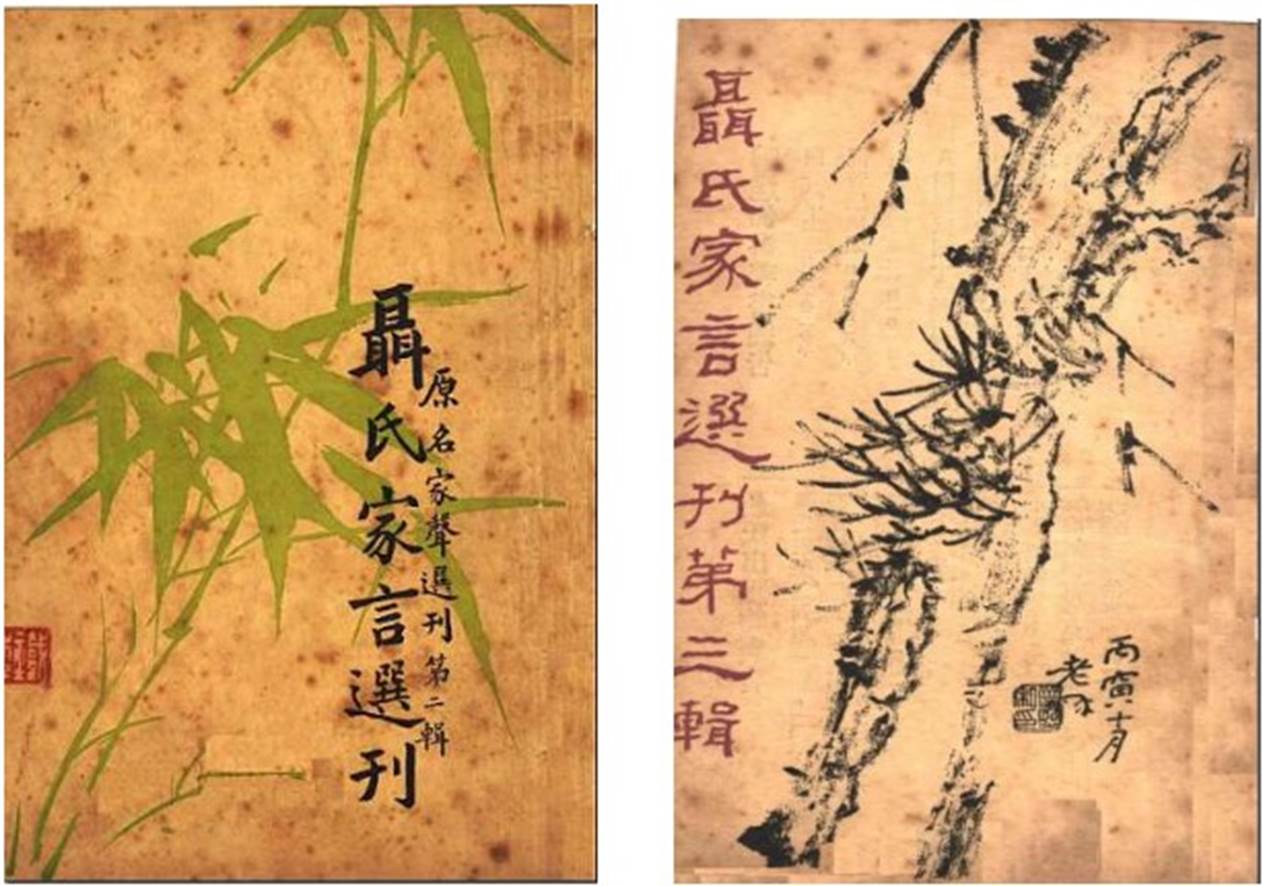 聶氏家言選刊
原名家聲選刊第二輯
聶氏家言選刊第三輯
丙寅十月